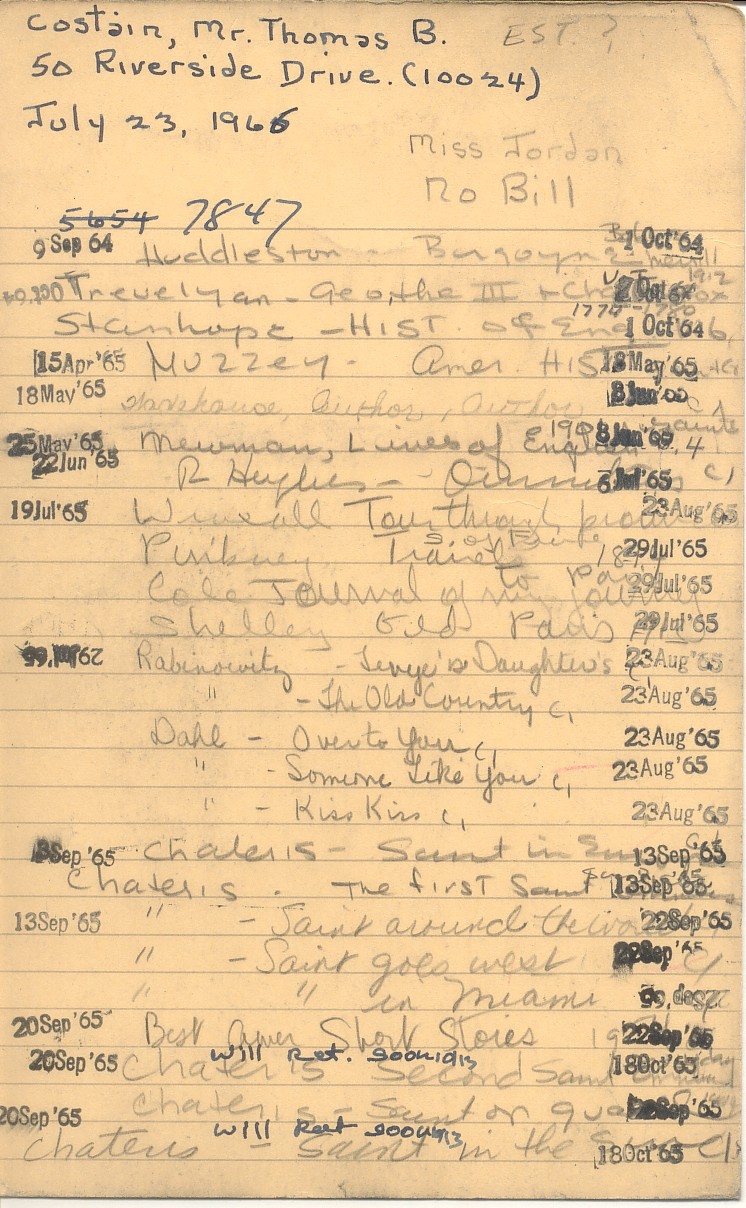 Costain, Mr. Thomas B. EST. ?
50 Riverside Drive. (10024)
July 23, 1966
Miss Jordan
No Bill
5654 7847
9 Sep 64 Huddleston - Burgoyne 1 Oct '64
Trevelyan - Geo. the III + Ch Fox
1775 - 1780
Stanhope - HIST. of Eng 1 Oct '64
15 Apr '65 Muzzey - Amer. HIS 18 May '65
18 May '65 author, author
25 May '65 Newman, Lines of England 8 Jun '65
22 Jun '65 R Hughes - 6 Jul '65
19 Jul '65 Wraxall Tour through 23 Aug '65
S. of France
Pinkney Travels 29 Jul '65
to Paris
Cole Journal of my journey 29 Jul '65
Shelley Old Paris 29 Jul '65
29 Jul '65 Rabinowitz - Tevye's Daughter's C, 23 Aug '65
" - The Old Country C, 23 Aug '65
Dahl - Over to You C, 23 Aug '65
" - Someone Like You C, 23 Aug '65
" - Kiss Kiss C, 23 Aug '65
Sep '65 Chateris - Saint in 13 Sep '65
Chateris. The first Saint 13 Sep '65
13 Sep '65 " - Saint around the world 22 Sep '65
" - Saint goes west 22 Sep '65
" " in Miami
20 Sep '65 Best Amer Short Stories 22 Sep '65
Will Ret.
20 Sep '65 Chateris Second Saint 18 Oct '65
Chateris - Saint on guard Sep '65
20 Sep '65 Will Ret
Chateris - Saint in the 18 Oct '65